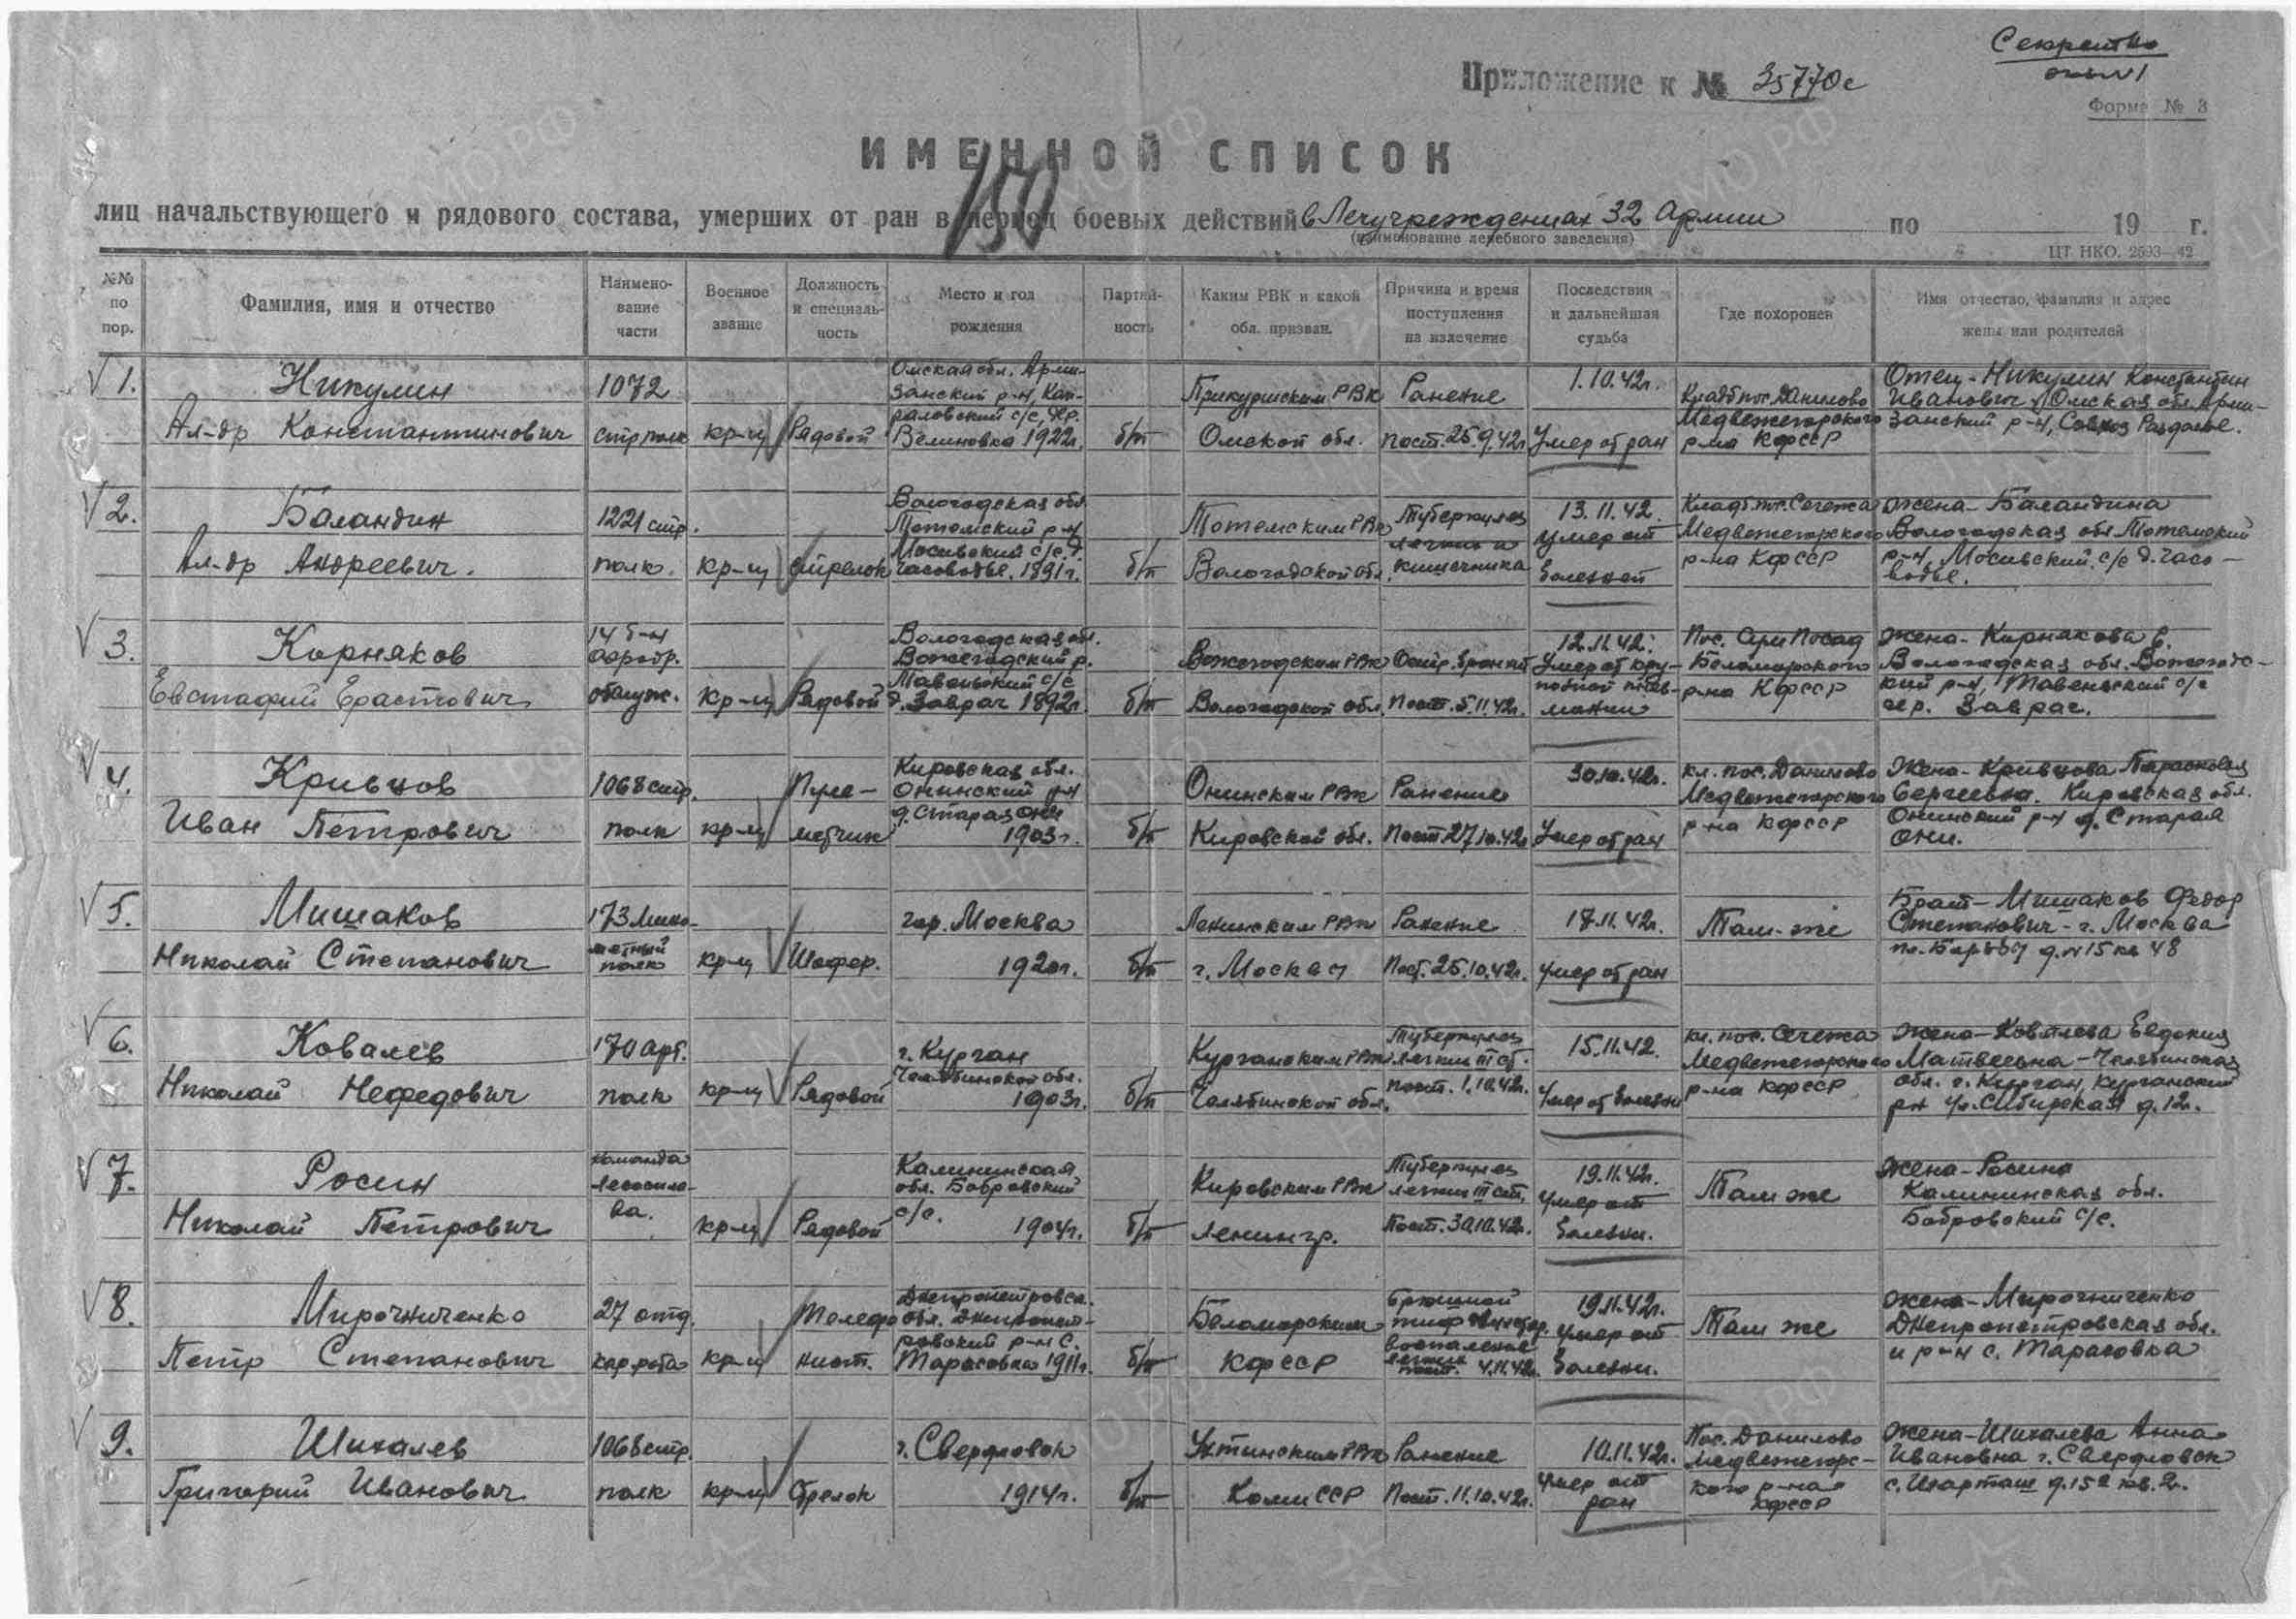 Секретно
Приложение к № 35770с
Форма № 3
ИМЕННОЙ СПИСОК
150
лиц начальствующего и рядового состава, умерших от ран в период боевых действий в Лечучреждениях 32 Армии по 19 г.
(наименование лечебного заведения)
ЦТ НКО. 2593—42
№№ по пор.
Фамилия, имя и отчество
Наименование части
Военное звание
Должность и специальность
Место и год рождения
Партийность
Каким РВК и какой обл. призван.
Причина и время поступления на излечение
Последствия и дальнейшая судьба
Где похоронен
Имя отчество, фамилия и адрес жены или родителей
1. Никулин
Ал-др Константинович
1072
стр полк
кр-ц
Рядовой
Омская обл. Арми-
занский р-н, Кап-
раловский с/с, дер.
1922г.
б/п
РВК
Омской обл.
Ранение
пост. 25.9.42г
1.10.42г.
Умер от ран
Кладб пос. Данилово
Медвежегорского
р-на КФССР
Отец - Никулин Константин
Иванович Омская обл. Арми-
занский р-н, Совхоз Раздолье.
2. Баландин
Ал-др Андреевич.
1221 стр.
полк.
кр-ц
стрелок
Вологодская обл
Тотемский р-н
Мосивский с/с д.
Часоводье, 1891г.
б/п
Тотемским РВК
Вологодской обл.
Туберкулез
легких и
кишечника
13.11.42.
умер от
болезней
Кладб. пос. Сегежа
Медвежегорского
р-на КФССР
жена - Баландина
Вологодская обл Тотемский
р-н, Мосивский, с/с д. Часо-
водье.
3. Корняков
Евстафий Ерастович
14 б-н
аэродр.
обслуж.
кр-ц
Рядовой
Вологодская обл.
Вожегодский р.
с/с
д. Заврач 1892г.
б/п
Вожегодским РВК
Вологодской обл.
Остр. бронхит
Пост. 5.11.42г.
12.11.42г.
Умер от кру-
позной пнев-
монии
Пос. Посад
Беломорского
р-на КФССР
жена - Корнякова Е.
Вологодская обл. Вожегодс-
кий р-н, Тавеньский с/с
дер. Заврас.
4. Кривцов
Иван Петрович
1068 стр.
полк
кр-ц
Пуле-
метчик
Кировская обл.
Онинский р-н
д. Старая Они
1903г.
б/п
Онинским РВК
Кировской обл.
Ранение
Пост 27.10.42г
30.10.42г.
Умер от ран
кл. пос. Данилово
Медвежегорского
р-на КФССР
Жена - Кривцова Парасковья
Сергеевна. Кировская обл.
Онинский р-н д. Старая
Они.
5. Мишаков
Николай Степанович
173 мино-
метный
полк
кр-ц
Шофер.
гор. Москва
1920г.
б/п
Ленинским РВК
г. Москвы
Ранение
Пост. 25.10.42г.
17.11.42г.
умер от ран
Там-же
Брат - Мишаков Федор
Степанович - г. Москва
д. №15 кв 48
6. Ковалев
Николай Нефедович
170 арт.
полк
кр-ц
Рядовой
г. Курган
Челябинской обл.
1903г.
б/п
Курганским РВК
Челябинской обл.
Туберкулез
легких III ст.
пост. 1.10.42г.
15.11.42.
Умер от болезни
кл. пос. Сегежа
Медвежегорского
р-на КФССР
жена - Ковалева Евдокия
Матвеевна - Челябинская
обл. г. Курган, Курганский
рн ул. Сибирская д. 12.
7. Росин
Николай Петрович
команда
лесоспла-
ва.
кр-ц
Рядовой
Калининская
обл. Бобровский
с/с. 1904г.
б/п
Кировским РВК
Ленингр.
Туберкулез
легких III ст.
Пост. 30.10.42г.
19.11.42г.
умер от
болезни.
Там же
жена - Росина
Калининская обл.
Бобровский с/с.
8. Мирочниченко
Петр Степанович
27 отд.
кар. рота
кр-ц
Телефо
нист.
Днепропетровск.
обл. Днепропет-
ровский р-н с.
Тарасовка 1911г.
б/п
Беломорским
КФССР
Брюшной
тиф
воспаление
легких
пост. 4.11.42г.
19.11.42г.
умер от
болезни.
Там же
жена - Мирочниченко
Днепропетровская обл.
и р-н с. Тарасовка
9. Шихалев
Григорий Иванович
1068 стр.
полк
кр-ц
Стрелок
г. Свердловск
1914г.
б/п
Ухтинским РВК
Коми ССР
Ранение
Пост. 11.10.42г.
10.11.42г.
Умер от
ран
Пос. Данилово
медвежегорс-
кого р-на
КФССР
жена - Шихалева Анна
Ивановна г. Свердловск
с. Шарташ д. 152 кв. 2.